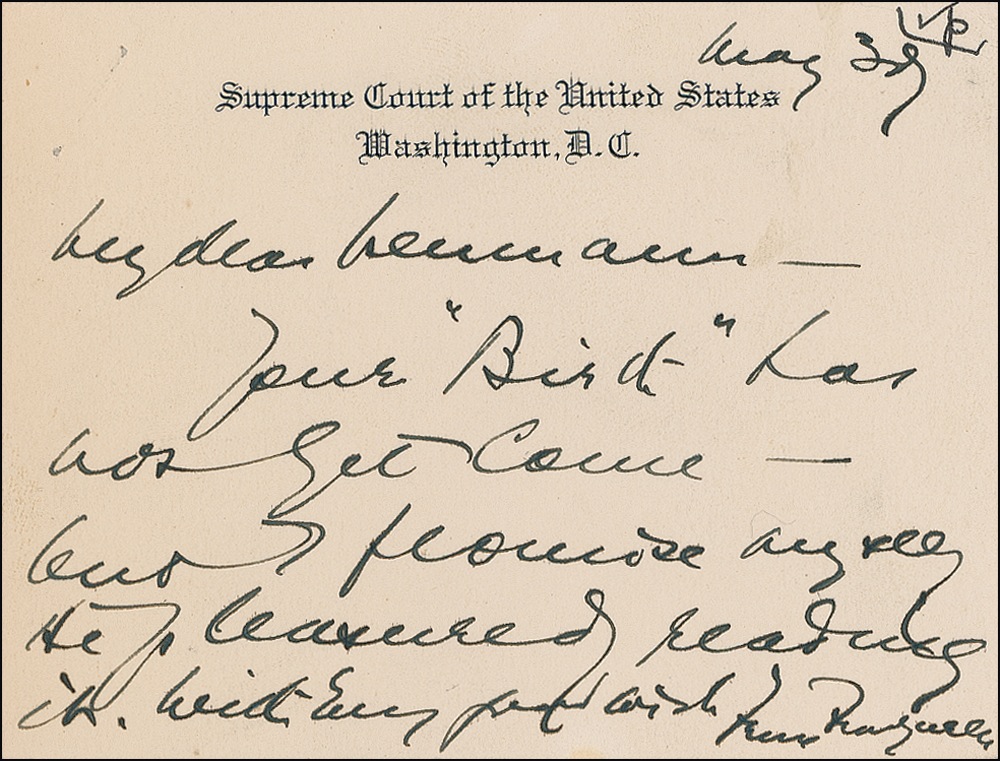 May 3d
Supreme Court of the United States
Washington, D.C.
My dear Neumann —
Your "Birth" has
not yet come —
but I promise myself
the pleasure of reading
it. With every good wish